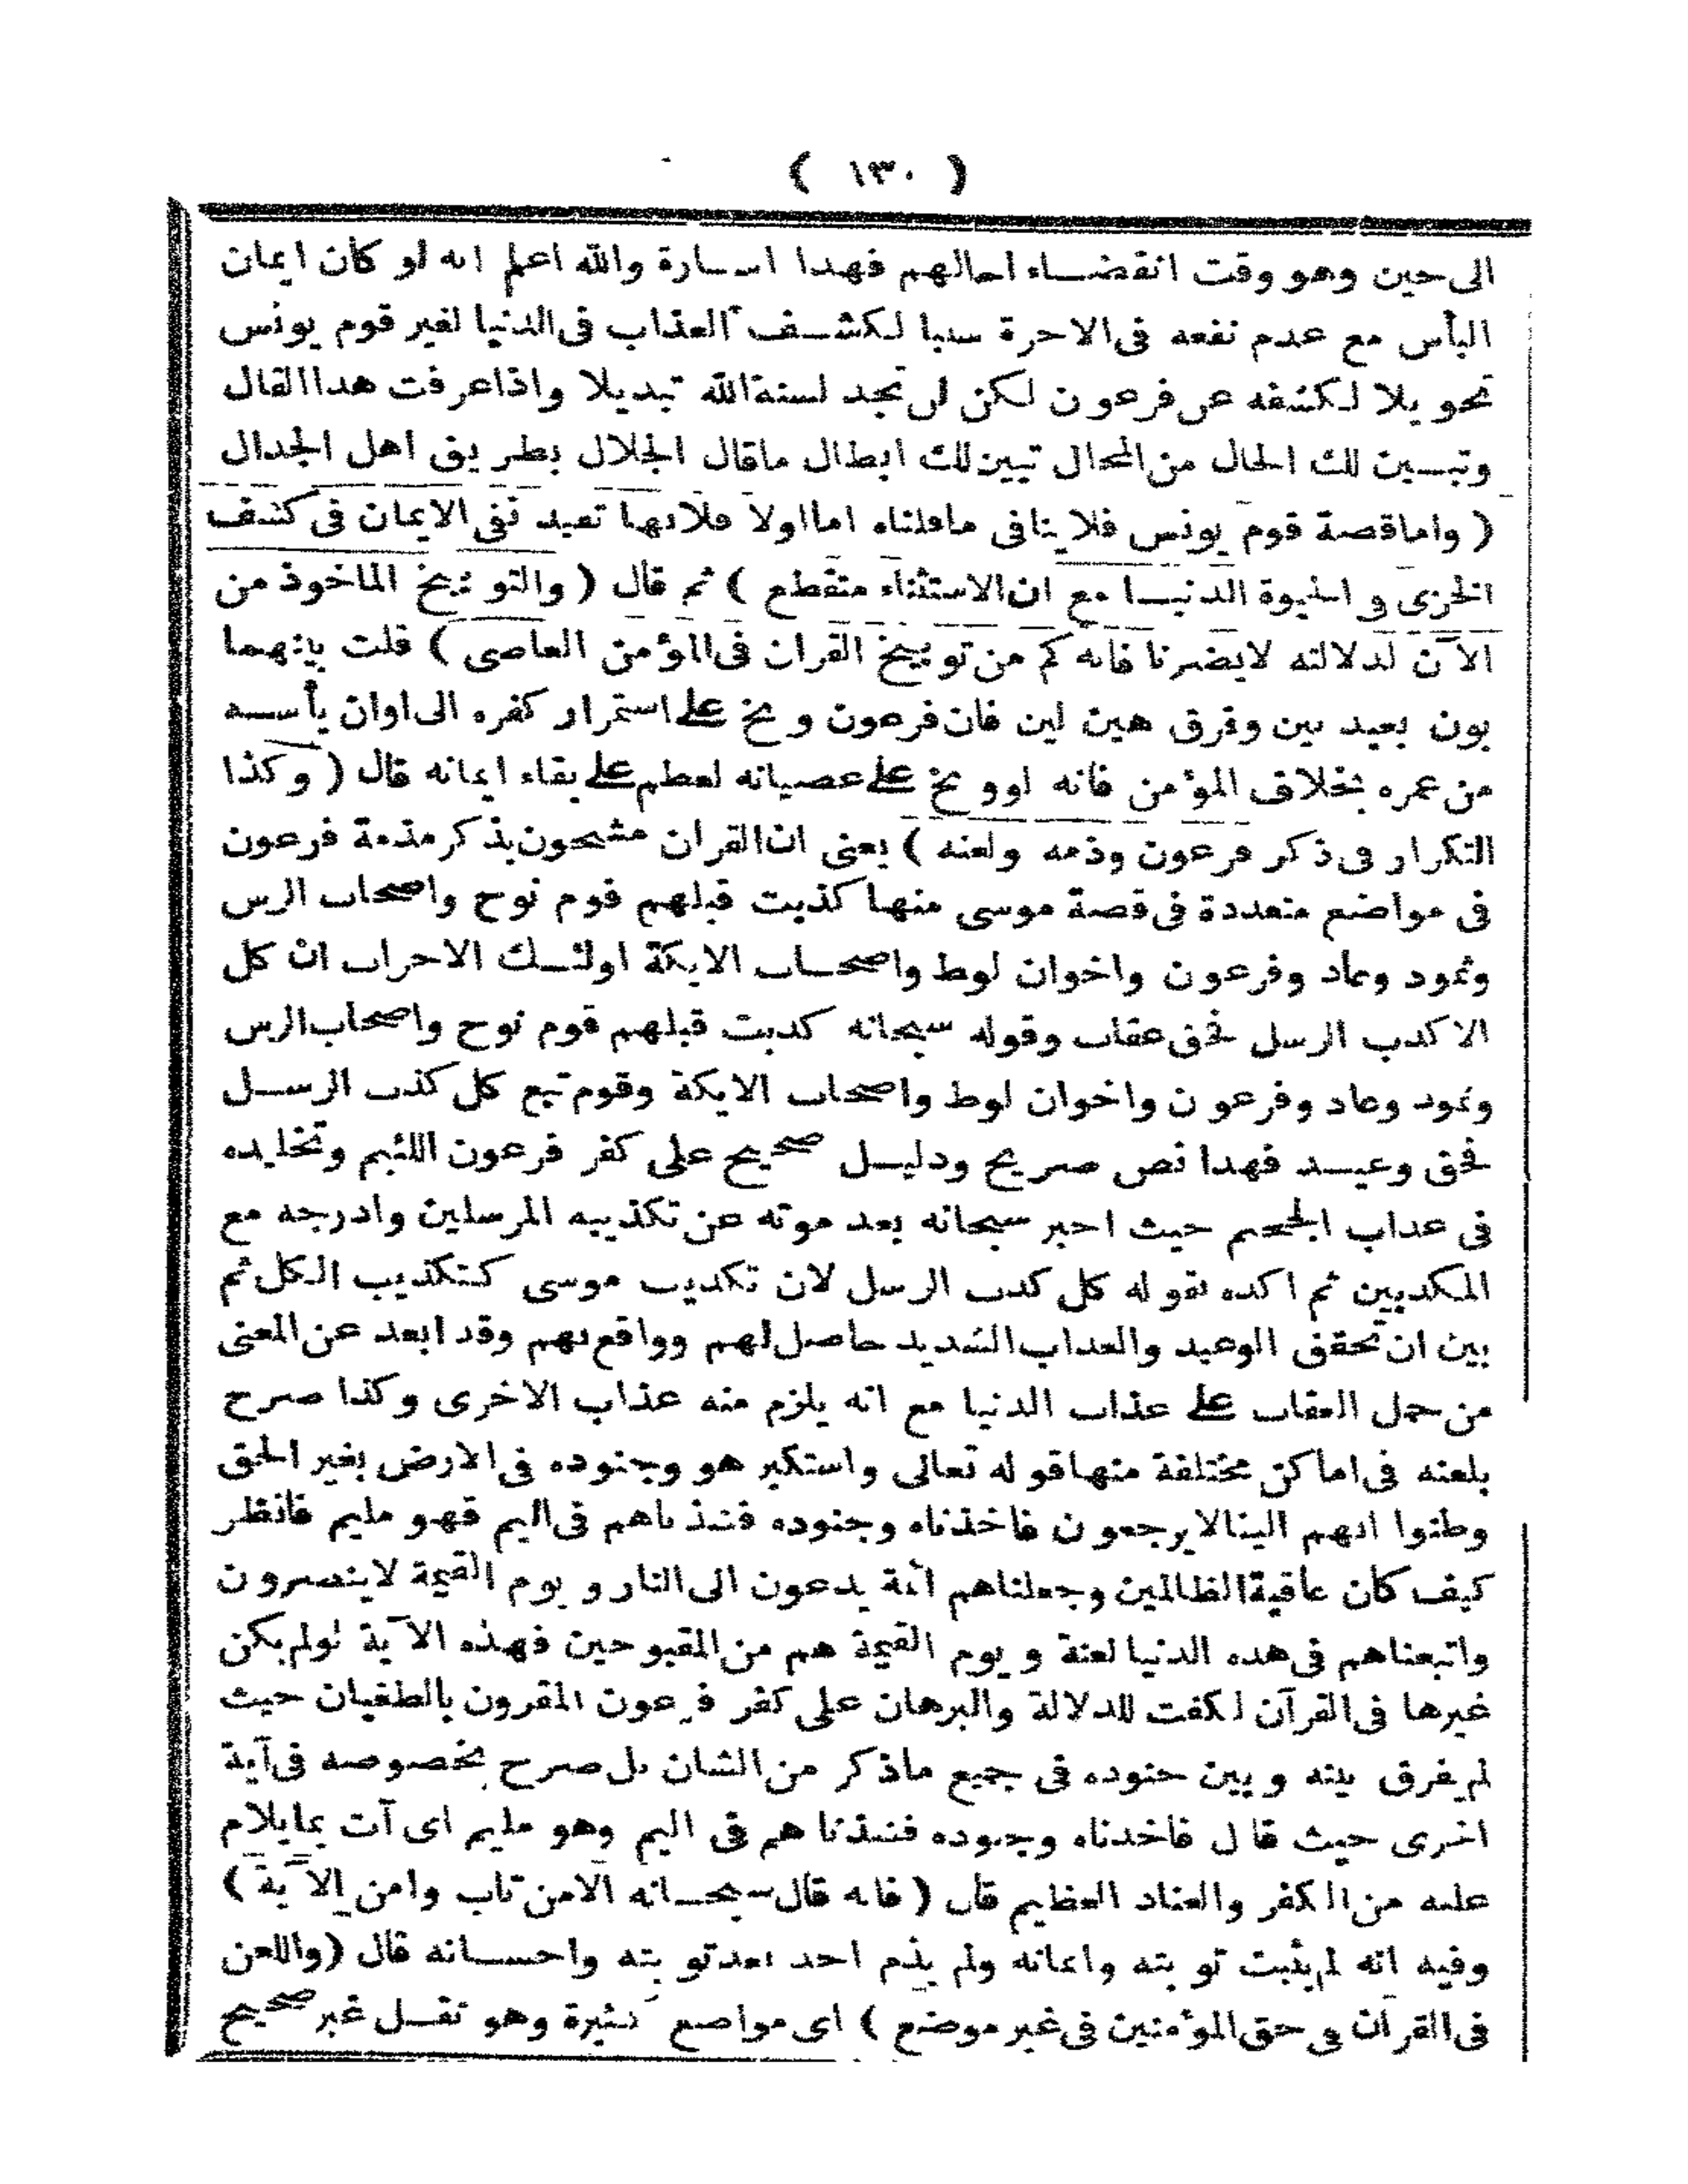 ( ١٣٠ )
الى حين وهو وقت انقضاء اجالهم فهدا اسارة والله اعلم انه لو كان ايمان
البأس مع عدم نفعه فى الاخرة سببا لكشف العذاب فى الدنيا لغير قوم يونس
تحويلا لكشفه عن فرعون لكن لن تجد لسنة الله تبديلا واذا عرفت هدا القال
وتبين لك الحال من المحال تبين لك ابطال ماقال الجلال بطريق اهل الجدال
( واما قصة قوم يونس فلا ينافى ماقلناه اما اولا فلانها تفيد نفى الايمان فى كشف
الخزى فى الحيوة الدنيا مع ان الاستثناء منقطع ) ثم قال ( والتوبيخ الماخوذ من
الآن لدلالته لايضرنا فانه كم من توبيخ القران فى المؤمن العاصى ) قلت بينهما
بون بعيد بين وفرق هين لين فان فرعون وبخ على استمرار كفره الى اوان يأسه
من عمره بخلاف المؤمن فانه او وبخ على عصيانه لعظم على بقاء ايمانه قال ( وكذا
التكرار فى ذكر فرعون وذمه ولعنه ) يعنى ان القران مشحون بذكر مذمة فرعون
فى مواضع متعددة فى قصة موسى منها كذبت قبلهم قوم نوح واصحاب الرس
وثمود وعاد وفرعون واخوان لوط واصحاب الايكة اولئك الاحزاب ان كل
الا كدب الرسل فحق عقاب وقوله سبحانه كدبت قبلهم قوم نوح واصحاب الرس
وثمود وعاد وفرعون واخوان لوط واصحاب الايكة وقوم تبع كل كذب الرسل
فحق وعيد فهدا نص صريح ودليل صحيح على كفر فرعون اللئيم وتخليده
فى عداب الجحيم حيث اخبر سبحانه بعد موته عن تكذيبه المرسلين وادرجه مع
المكدبين ثم اكده بقوله كل كدب الرسل لان تكديب موسى كتكذيب الكل ثم
بين ان تحقق الوعيد والعداب الشديد حاصل لهم وواقع بهم وقد ابعد عن المعنى
من حمل العقاب على عذاب الدنيا مع انه يلزم منه عذاب الاخرى وكذا صرح
بلعنه فى اماكن مختلفة منها قوله تعالى واستكبر هو وجنوده فى الارض بغير الحق
وظنوا انهم الينا لا يرجعون فاخذناه وجنوده فنبذناهم فى اليم فهو مليم فانظر
كيف كان عاقبة الظالمين وجعلناهم ائمة يدعون الى النار ويوم القيمة لاينصرون
واتبعناهم فى هده الدنيا لعنة ويوم القيمة هم من المقبوحين فهذه الآية لولم يكن
غيرها فى القرآن لكفت للدلالة والبرهان على كفر فرعون المقرون بالطغيان حيث
لم يفرق بينه وبين جنوده فى جميع ماذكر من الشان بل صرح بخصوصه فى آية
اخرى حيث قال فاخدناه وجنوده فنبذناهم فى اليم وهو مليم اى آت بما يلام
عليه من الكفر والعناد العظيم قال ( فانه قال سبحانه الامن تاب وامن الآية )
وفيه انه لم يثبت توبته وايمانه ولم يذم احد بعد توبته واحسانه قال ( واللعن
فى القرآن فى حق المؤمنين فى غير موضع ) اى مواضع كثيرة وهو نقل غير صحيح